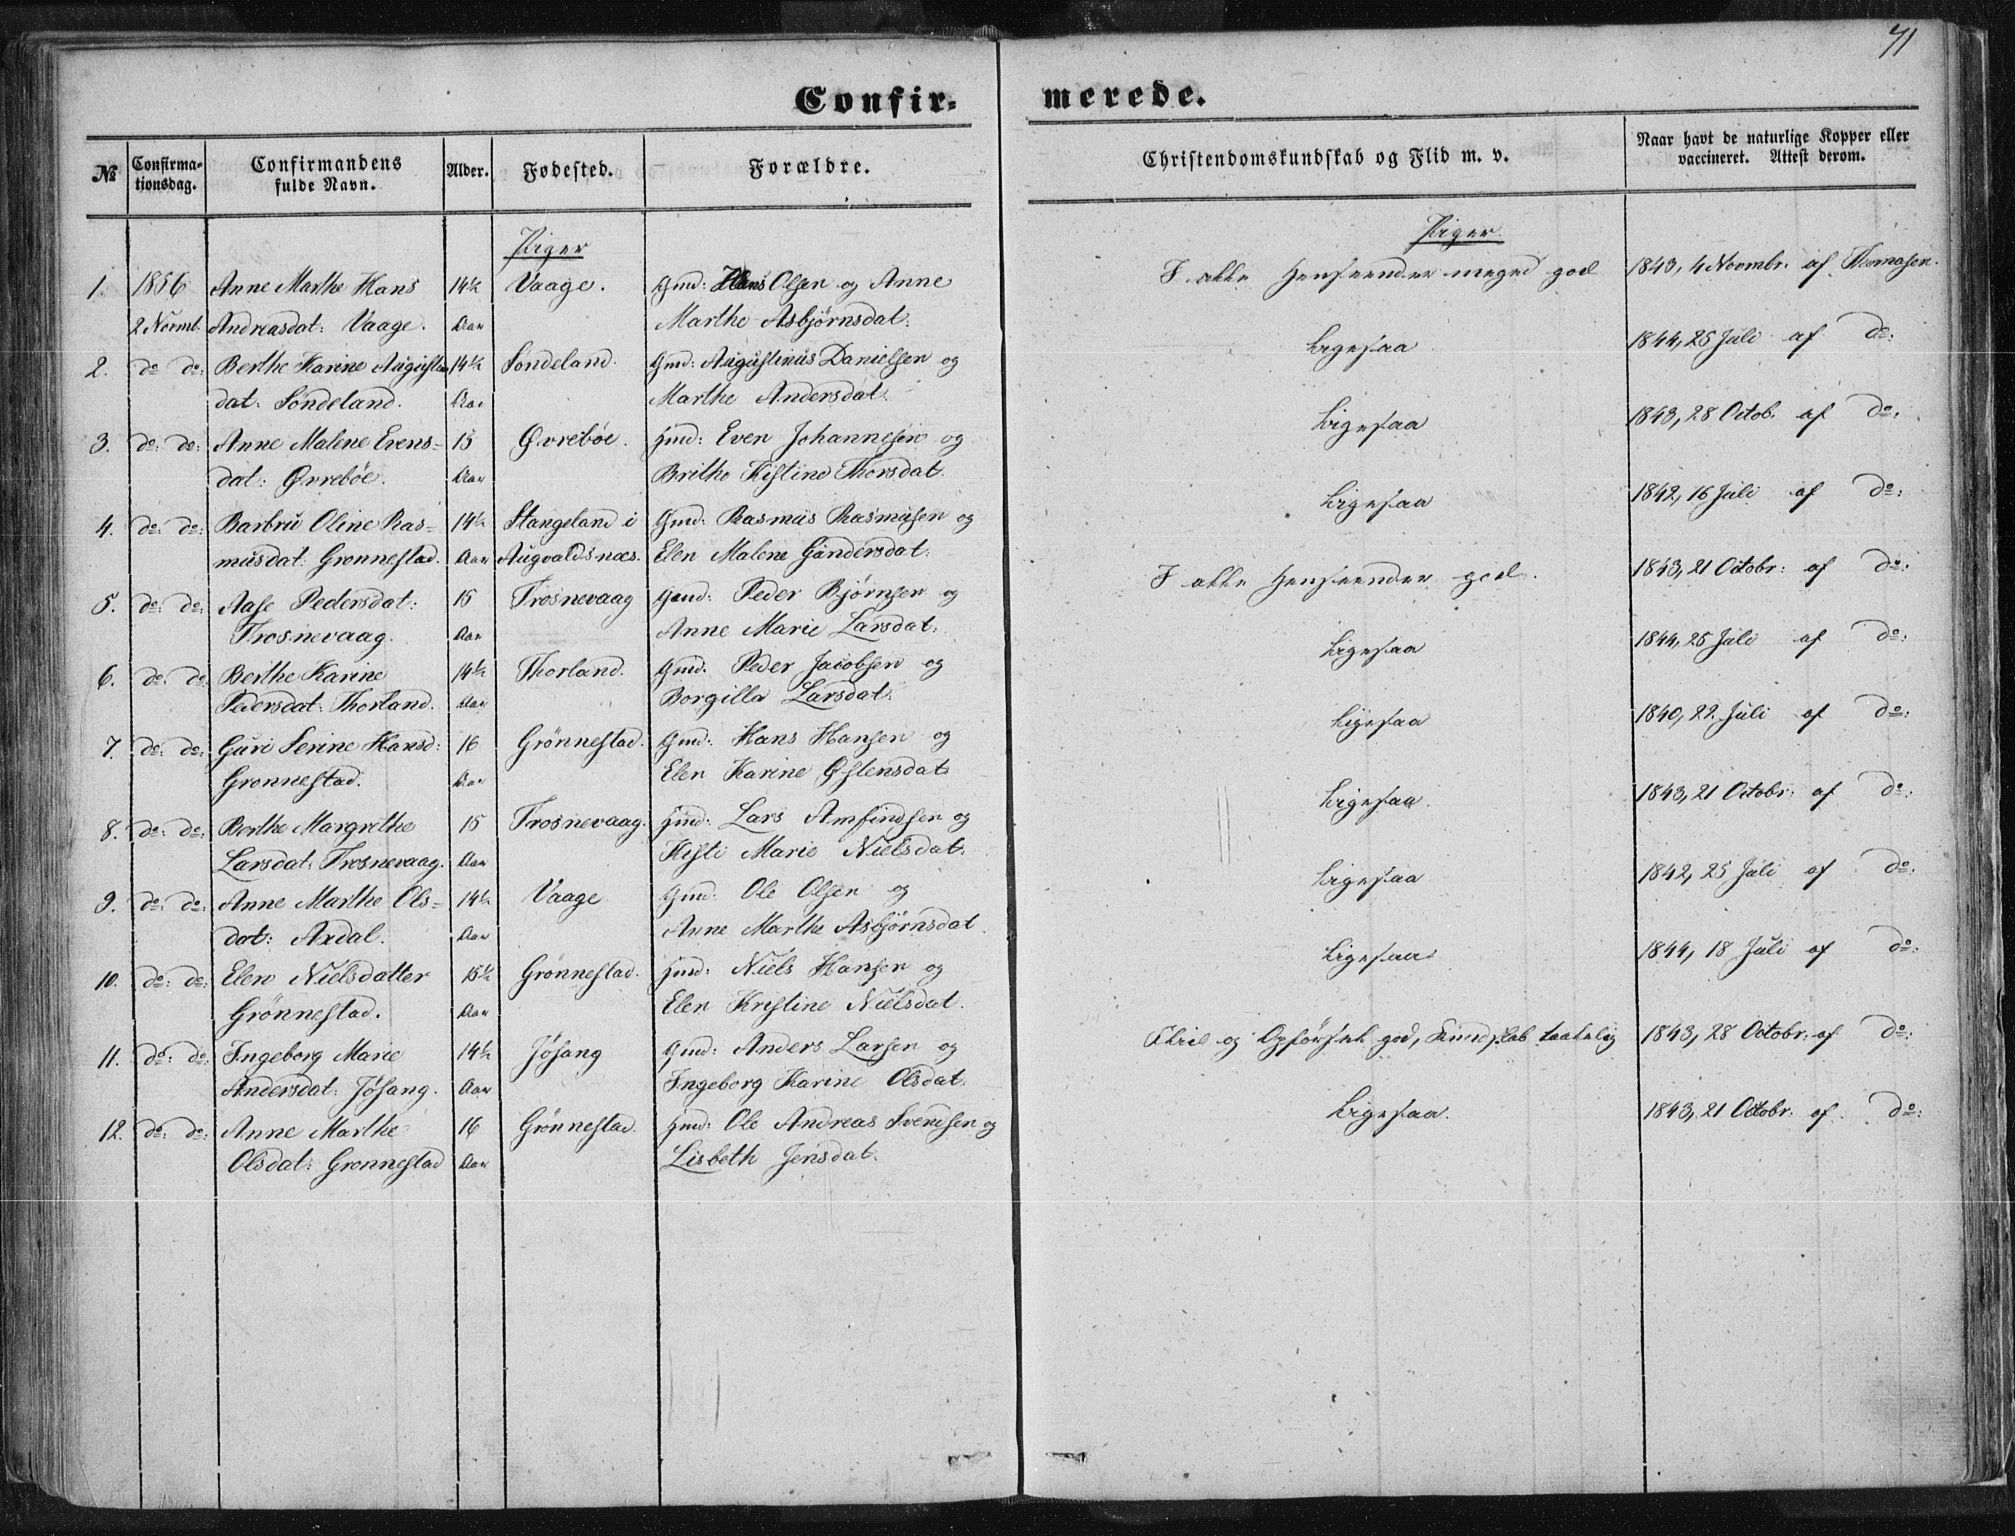 71
Confirmerede.
№ Confirmationsdag. Confirmandens fulde Navn. Alder. Fødested. Forældre. Christendomskundskab og Flid m. v. Naar havt de naturlige Kopper eller vaccineret. Attest derom.
Piger Piger.
1. 1856 Anne Marthe Hans 14½ Vaage. Gmd: Hans Olsen og Anne I alle Henseender meget god 1843, 4 Novmbr. af Thomasen.
2 Novmb. Andreasdat: Vaage. Aar Marthe Asbjørnsdat:
2. do do: Berthe Karine Augustin 14½ Søndeland. Gmd: Augustinus Danielsen og Ligesaa 1844, 25 Juli af do:
dat: Søndeland. Aar Marthe Andersdat:
3. do: do: Anne Malene Evens- 15 Øvrebøe. Gmd: Even Johannesen og Ligesaa 1843, 28 Octob. af do:
dat: Øvrebøe. Aar Brithe Kistine Thorsdat.
4. do: do: Barbru Oline Ras- 14½ Stangeland i Gmd: Rasmus Rasmusen og Ligesaa 1842, 16 Juli af do:
musdat: Grønnestad. Aar Augvaldsnæs. Elen Malene Gundersdat:
5. do: do: Aase Pedersdat: 15 Trosnevaag Gmd: Peder Bjørnsen og I alle Henseender god. 1843, 21 Octobr: af do:
Trosnevaag. Aar Anne Marie Larsdat:
6. do: do: Berthe Karine 14½ Thorland. Gmd: Peder Jacobsen og Ligesaa 1844, 25 Juli af do:
Pedersdat: Thorland. Aar Borgilla Larsdat.
7. do: do: Guri Serine Hansd: 16 Grønnestad. Gmd: Hans Hansen og Ligesaa 1840, 22. Juli af do:
Grønnestad. Aar Elen Karine Østensdat:
8. do: do: Berthe Margrethe 15 Trosnevaag. Gmd: Lars Amfindsen og Ligesaa. 1843, 21 Octobr: af do:
Larsdat: Trosnevaag. Aar Kisti Marie Nielsdat:
9. do: do: Anne Marthe Ols- 14½ Vaage Gmd: Ole Olsen og Ligesaa 1842, 25 Juli af do:
dat: Axdal. Aar Anne Marthe Asbjørnsdat.
10. do: do: Elen Nielsdatter 15½ Grønnestad. Gmd: Niels Hansen og Ligesaa 1844, 18 Juli af do:
Grønnestad. Aar Elen Kristine Nielsdat.
11. do: do: Ingeborg Marie 14½ Jøsang Gmd: Anders Larsen og Flid og Opførsel god, Kundskab taalelig 1843, 28 Octobr: af do:
Andersdat: Jøsang. Aar Ingeborg Karine Olsdat:
12. do: do: Anne Marthe 16 Grønnestad. Gmd: Ole Andreas Svendsen og Ligesaa. 1843, 21 Octobr: af do:
Olsdat: Grønnestad Aar Lisbeth Jensdat: